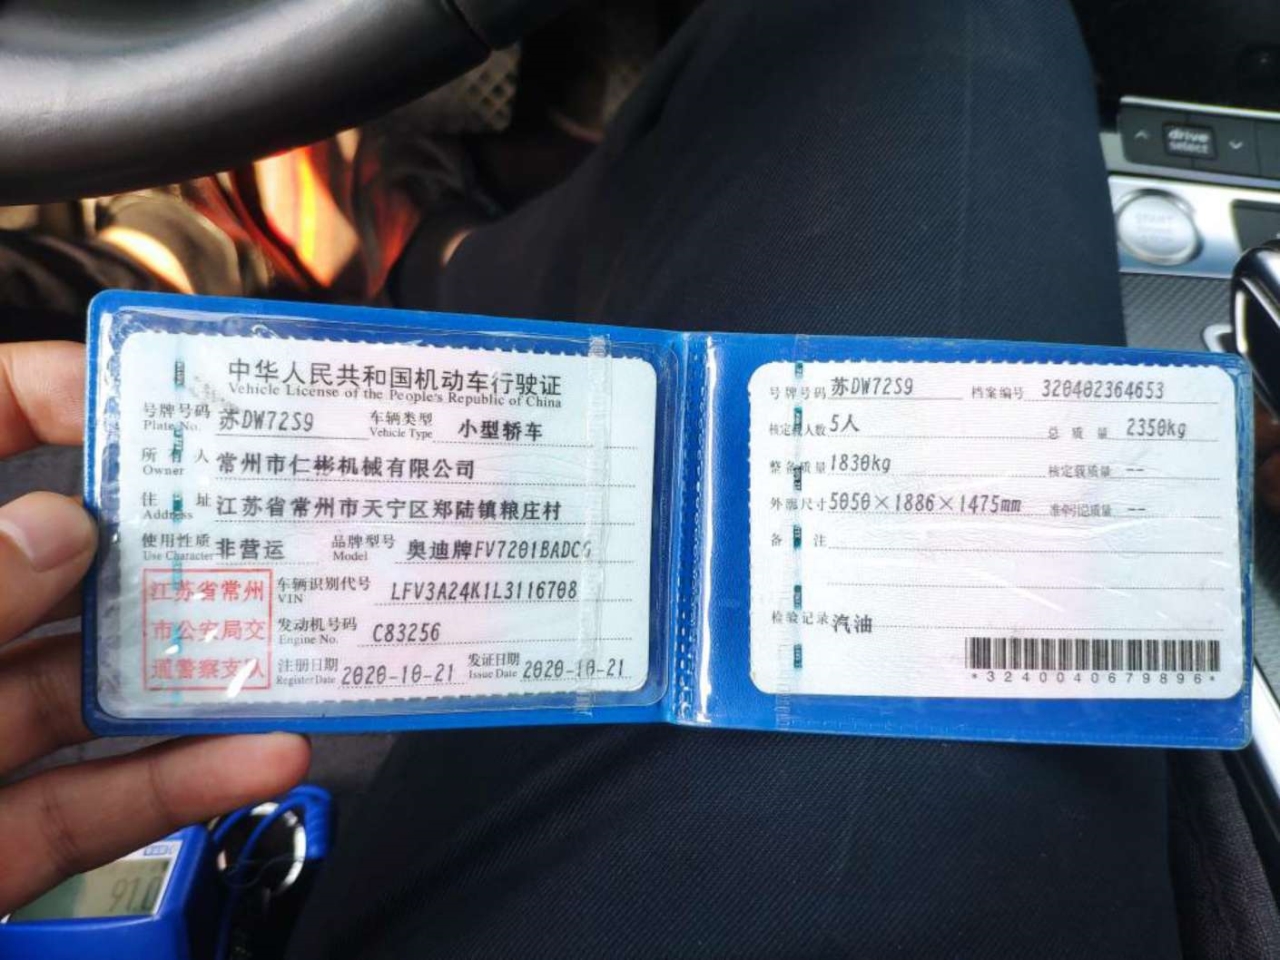 中华人民共和国机动车行驶证
Vehicle License of the People's Republic of China
号牌号码 苏DW72S9 车辆类型 小型轿车
Plate No. Vehicle Type
所有人 常州市仁彬机械有限公司
Owner
住址 江苏省常州市天宁区郑陆镇粮庄村
Address
使用性质 非营运 品牌型号 奥迪牌FV7201BADCG
Use Character Model
江苏省常州
市公安局交
通警察支队
车辆识别代号 LFV3A24K1L3116708
VIN
发动机号码 C83256
Engine No.
注册日期 2020-10-21 发证日期 2020-10-21
Register Date Issue Date
号牌号码 苏DW72S9 档案编号 320402364653
核定载人数 5人 总质量 2350kg
整备质量 1830kg 核定载质量 --
外廓尺寸 5050×1886×1475mm 准牵引总质量 --
备注
检验记录 汽油
*3240040679896*
drive
select
START
91.0